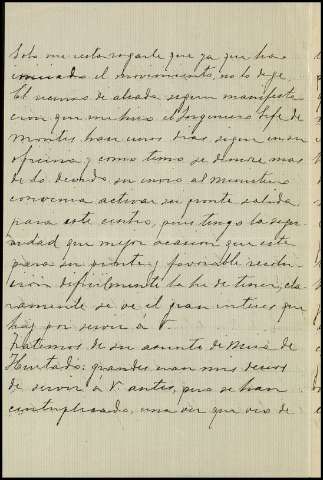 Solo me resta rogarle que ya que ha
iniciado el movimiento, no lo deje.
El recurso de alzada segun manifesta
cion que me hizo el Ingeniero Jefe de
montes, hara unos dias, sigue en su
oficina y como temo se demore mas
de lo deseado, su envio al Ministerio
convenia activar su pronta salida
para este centro, pues tengo la segu-
ridad que mejor ocasion que esta
para su pronta y favorable resolu-
cion dificilmente la ha de tener, cla-
ramente se ve el gran interes que
hay por servir á V.
Tratemos de su asunto de Mesa de
Hurtado: grandes eran mis deseos
de servir á V. antes, pero se han
centuplicado, una vez que veo de